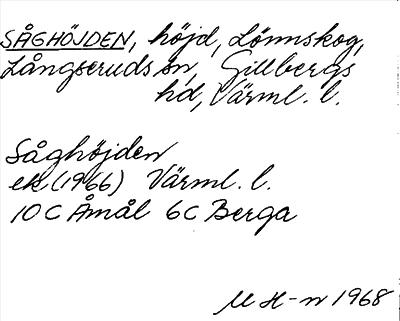 SÅGHÖJDEN, höjd, Lönnskog,
Långseruds sn, Gillbergs
hd, Värml. l.
Såghöjden
ek (1966) Värml. l.
10 C Åmål 6 C Berga
M H-n 1968